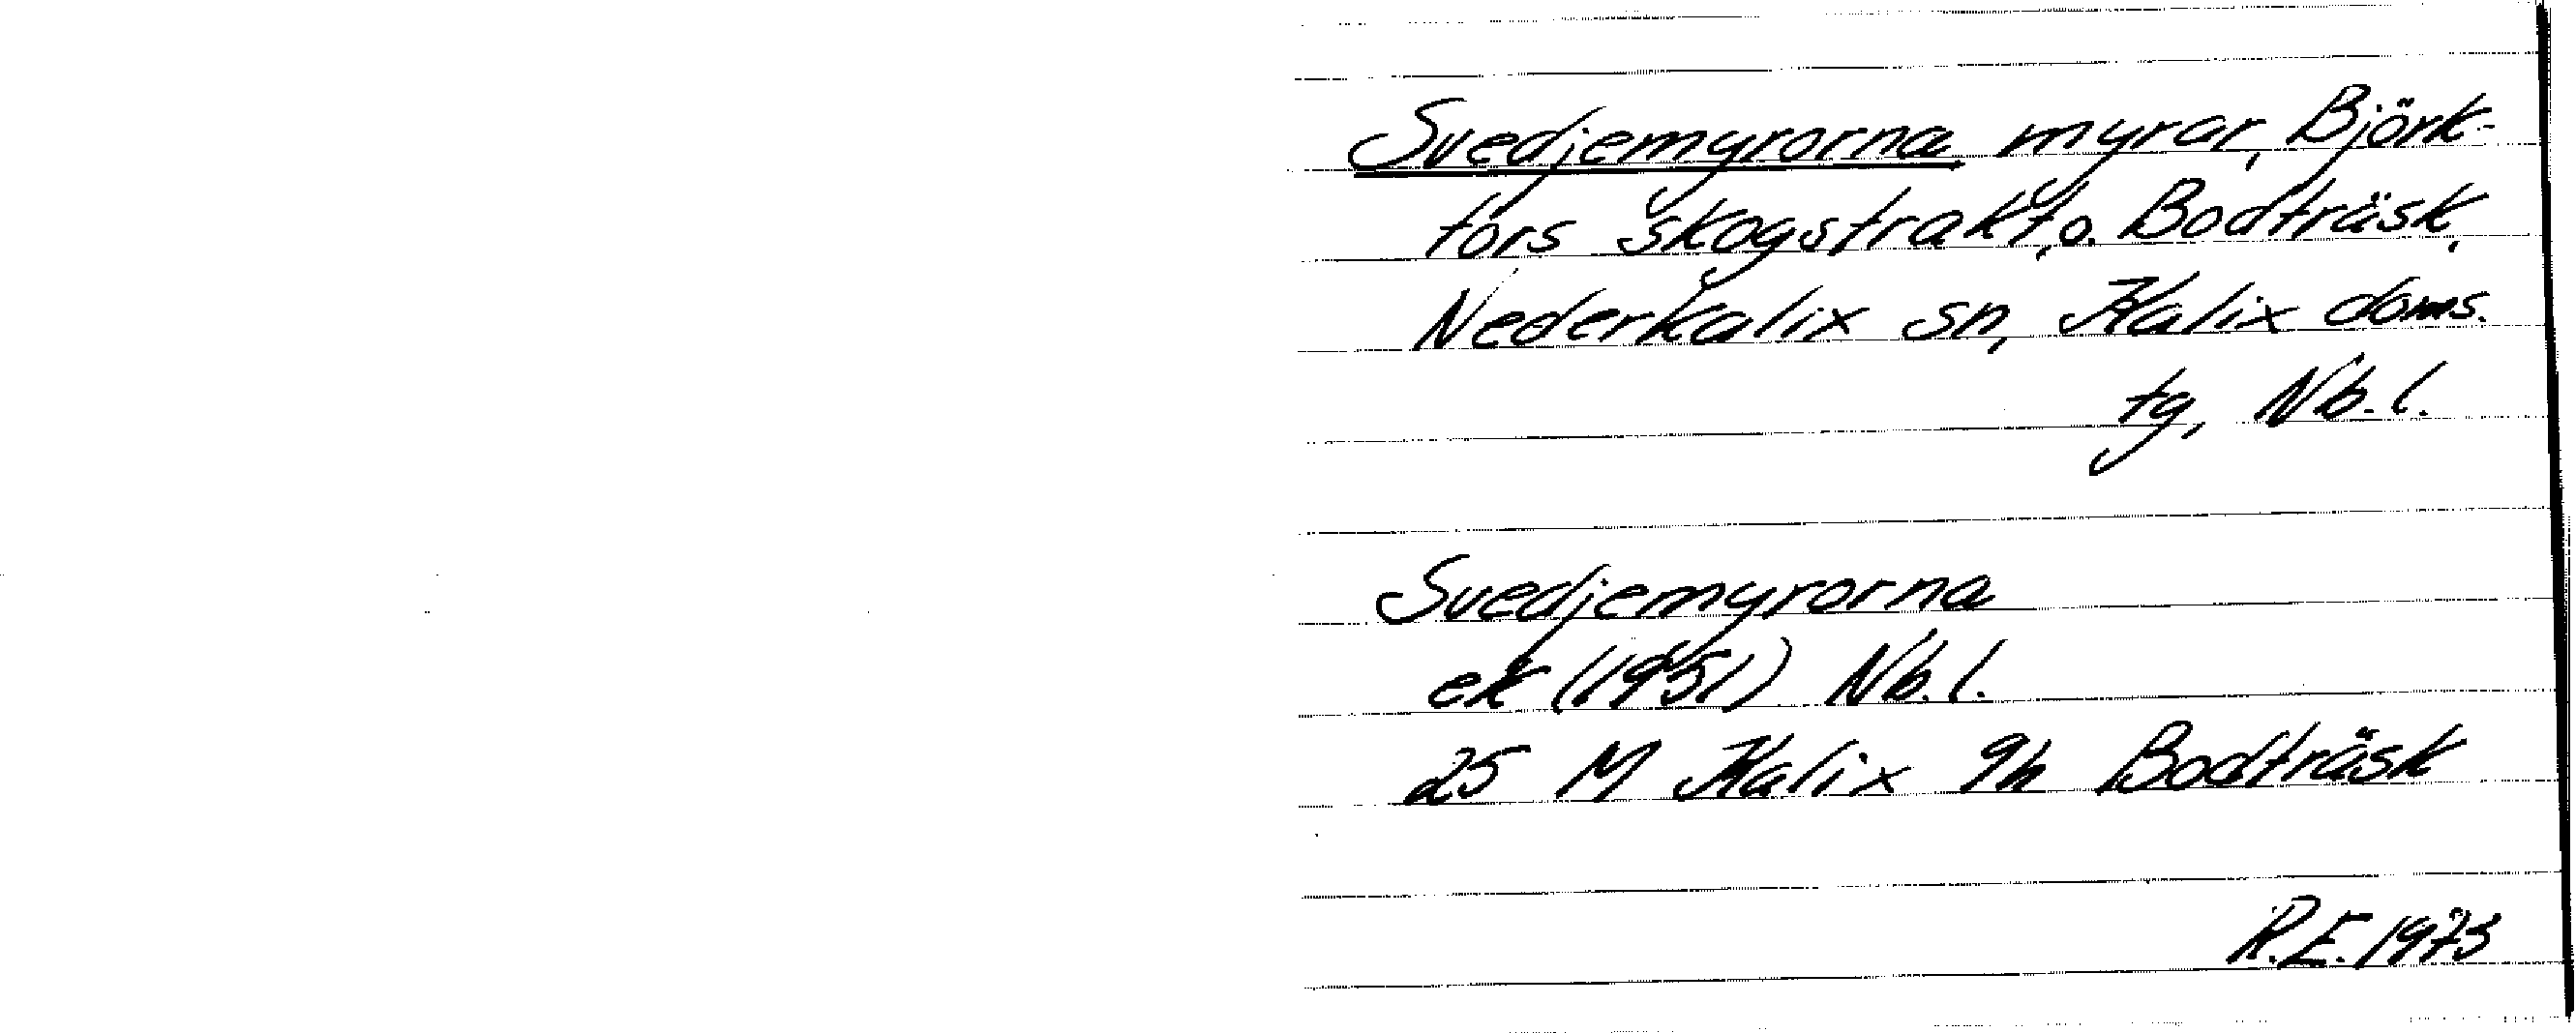 Svedjemyrorna myrar, Björk-
fors skogstrakt, o. Bodträsk,
Nederkalix sn, Kalix doms.
tg, Nb.l.
Svedjemyrorna
ek (1951) Nb.l.
25 M Kalix 9h Bodträsk
R.E. 1973